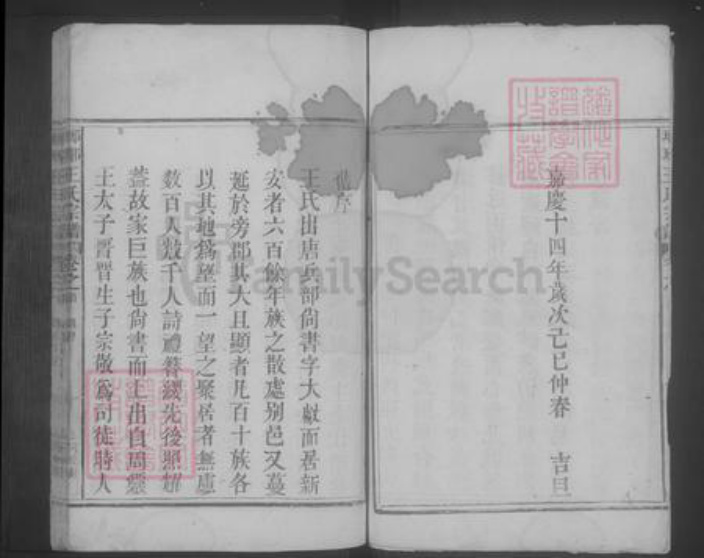 嘉慶十四年歲次己巳仲春 吉旦
世序
王氏出唐兵部尙書字大獻而居新
安者六百餘年族之散處別邑又蔓
延於旁郡其大且顯者凡百十族各
以其地爲望而一望之聚居者無慮
數百人數千人詩禮簪纓先後照耀
蓋故家巨族也尙書而上出自周靈
王太子晋晋生子宗敬爲司徒時人
FamilySearch